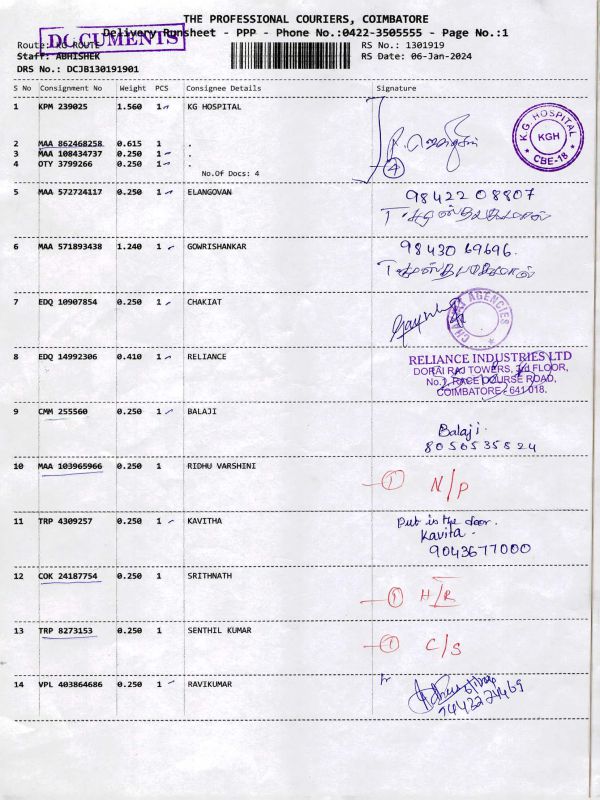 THE PROFESSIONAL COURIERS, COIMBATORE
DOCUMENTS
Delivery Runsheet - PPP - Phone No.:0422-3505555 - Page No.:1
Route: KG ROUTE
RS No.: 1301919
Staff: ABHISHEK
RS Date: 06-Jan-2024
DRS No.: DCJB130191901
S No Consignment No Weight PCS Consignee Details Signature
1 KPM 239025 1.560 1 KG HOSPITAL
KG HOSPITAL KGH CBE-18
2 MAA 862468258 0.615 1 .
3 MAA 108434737 0.250 1 .
4 OTY 3799266 0.250 1 .
4
No.Of Docs: 4
5 MAA 572724117 0.250 1 ELANGOVAN 98422 08807
6 MAA 571893438 1.240 1 GOWRISHANKAR 98430 69696.
7 EDQ 10907854 0.250 1 CHAKIAT
AGENCIES
8 EDQ 14992306 0.410 1 RELIANCE
RELIANCE INDUSTRIES LTD
DORAI RAJ TOWERS, FLOOR,
RACE COURSE ROAD,
COIMBATORE - 641 018.
9 CMM 255560 0.250 1 BALAJI
Balaji.
8056535824
10 MAA 103965966 0.250 1 RIDHU VARSHINI
1 N/P
11 TRP 4309257 0.250 1 KAVITHA Put is the door.
Kavita.
9043677000
12 COK 24187754 0.250 1 SRITHNATH
1 H/R
13 TRP 8273153 0.250 1 SENTHIL KUMAR
1 C/S
14 VPL 403864686 0.250 1 RAVIKUMAR
9442224469